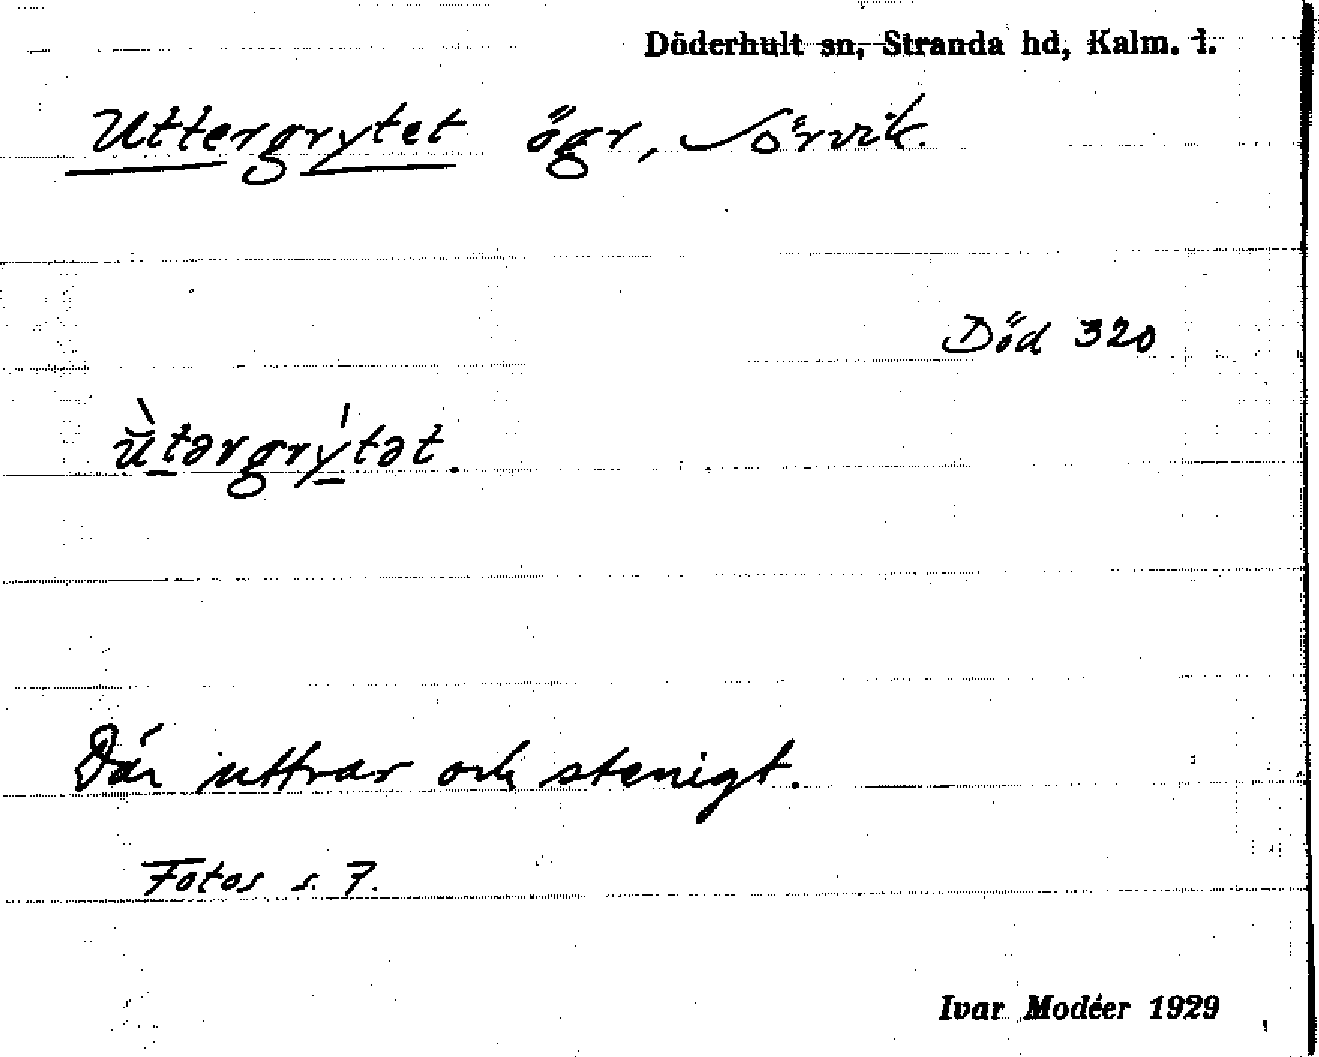 Döderhult sn, Stranda hd, Kalm. l.
Uttergrytet ögr, Örvik.
Död 320
ù̆tərgrýtət.
Där uttrar och stenigt.
Fotos s. 7.
Ivar Modéer 1929